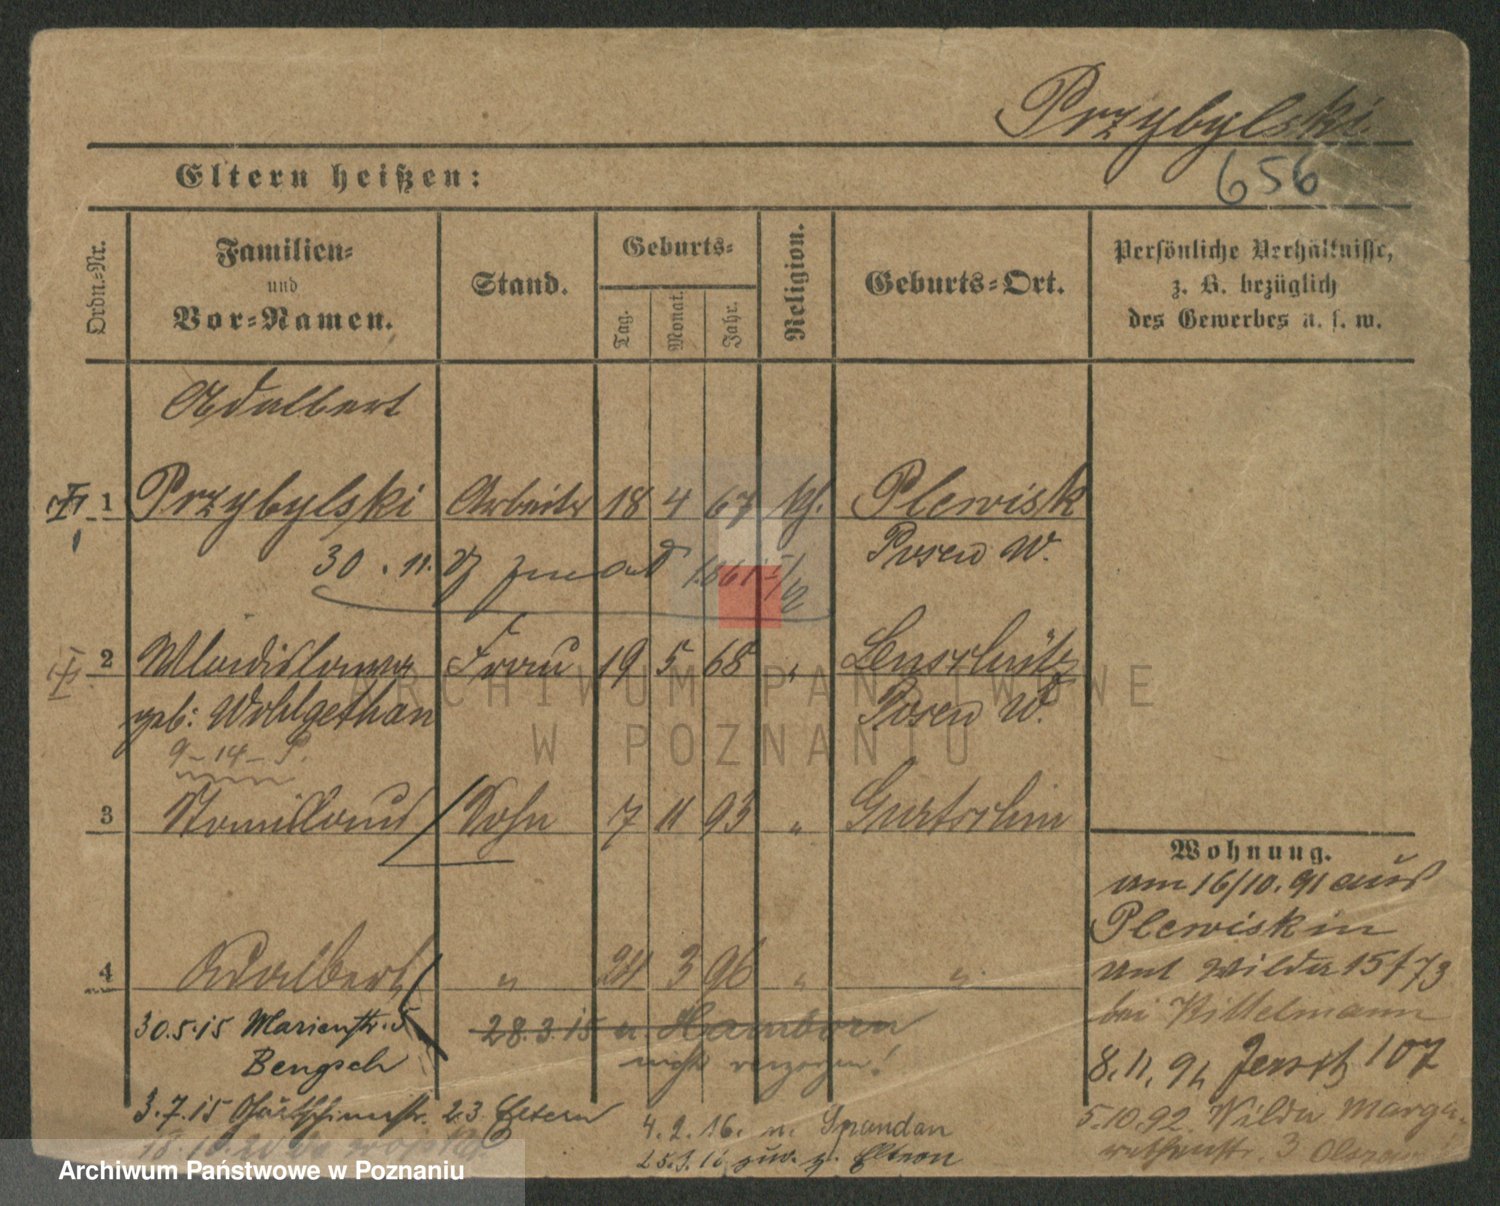 Przybylski.
656
Eltern heißen:
Ordn.-Nr.
Familien-
und
Vor-Namen.
Stand.
Geburts-
Tag.
Monat.
Jahr.
Religion.
Geburts-Ort.
Persönliche Verhältnisse,
z. B. bezüglich
des Gewerbes u. s. w.
Adalbert
1 Przybylski Arbeiter 18 4 67 kth. Plewisk
Posen W.
30. 11. 1861
2 Wladislawa Frau 19 5 68 " Lenschütz
geb: Wohlgethan Posen W.
9-14-P.
3 Stanislaus Sohn 7 11 93 " Gurtschin
4 Adalbert " 24 3 96 " "
30.5.15 Marienstr. 5
Bengsch
28.3.15 n. Hamborn
nicht verzogen!
3.7.15 Gurtschinerstr. 23 Eltern
18.10.20
4.2.16. n. Spandau
25.3.16 zur. z. Eltern
Wohnung.
am 16/10.91 aus
Plewisk in
Wilda 15/73
bei Kittelmann
8.11.91 Jersitz 107
5.10.92. Wilda Marga-
rethenstr. 3
ARCHIWUM PAŃSTWOWE
W POZNANIU
Archiwum Państwowe w Poznaniu